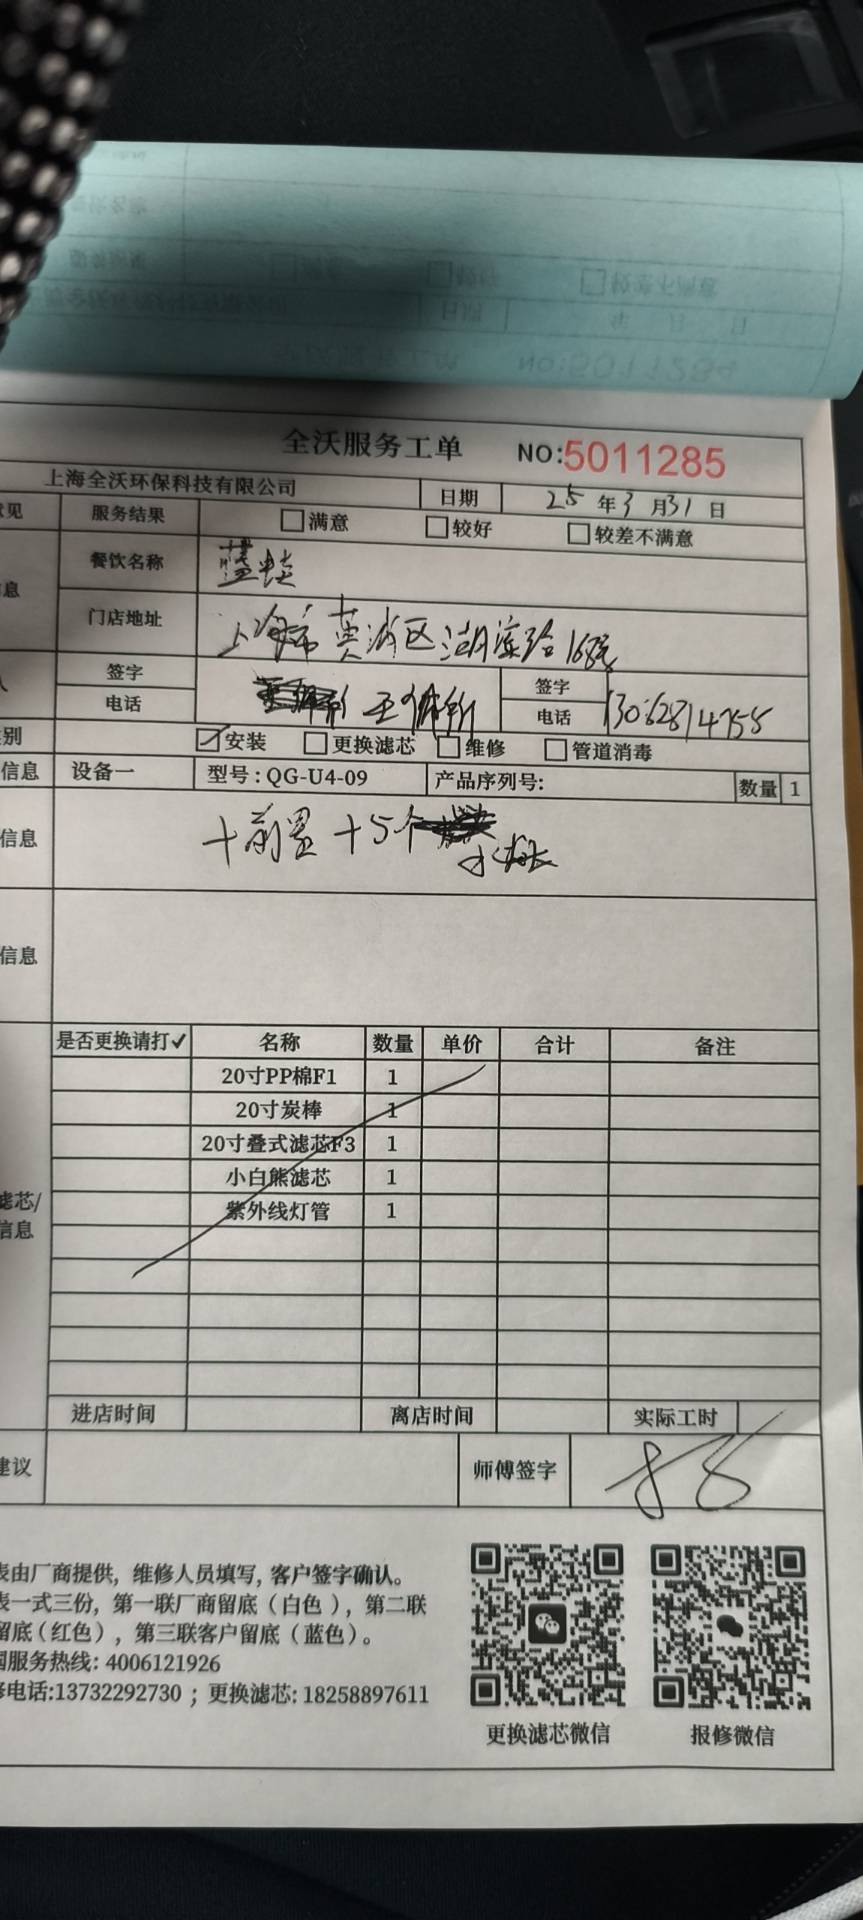 全沃服务工单 NO:5011285
上海全沃环保科技有限公司 日期 25年3月31日
意见 服务结果 满意 较好 较差不满意
息 餐饮名称 蓝蛙
门店地址 上海市黄浦区湖滨路168号
人 签字 签字
电话 王佩新 电话 13062814755
类别 安装 更换滤芯 维修 管道消毒
信息 设备一 型号: QG-U4-09 产品序列号: 数量 1
信息 +前置+5个
信息
是否更换请打✓ 名称 数量 单价 合计 备注
20寸PP棉F1 1
20寸炭棒 1
20寸叠式滤芯F3 1
小白熊滤芯 1
滤芯/
信息
紫外线灯管 1
进店时间 离店时间 实际工时
建议 师傅签字
表由厂商提供, 维修人员填写, 客户签字确认。
表一式三份, 第一联厂商留底(白色), 第二联
留底(红色), 第三联客户留底(蓝色)。
国服务热线: 4006121926
修电话:13732292730 ; 更换滤芯: 18258897611
更换滤芯微信 报修微信